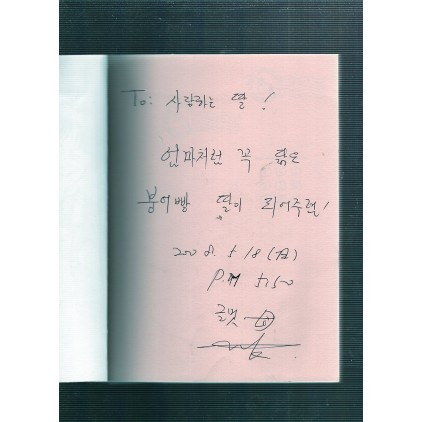 To: 사랑하는 딸!
엄마처럼 꼭 닮은
붕어빵 딸이 되어주렴!
200 8. 5/8 (日)
P.M 5:50
글멋